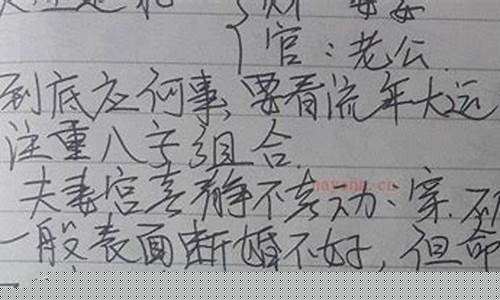 财
官：老公
到底应何事，要看流年大运
注重八字组合
夫妻宫喜静不喜动、害、
一般表面断婚不好，但命